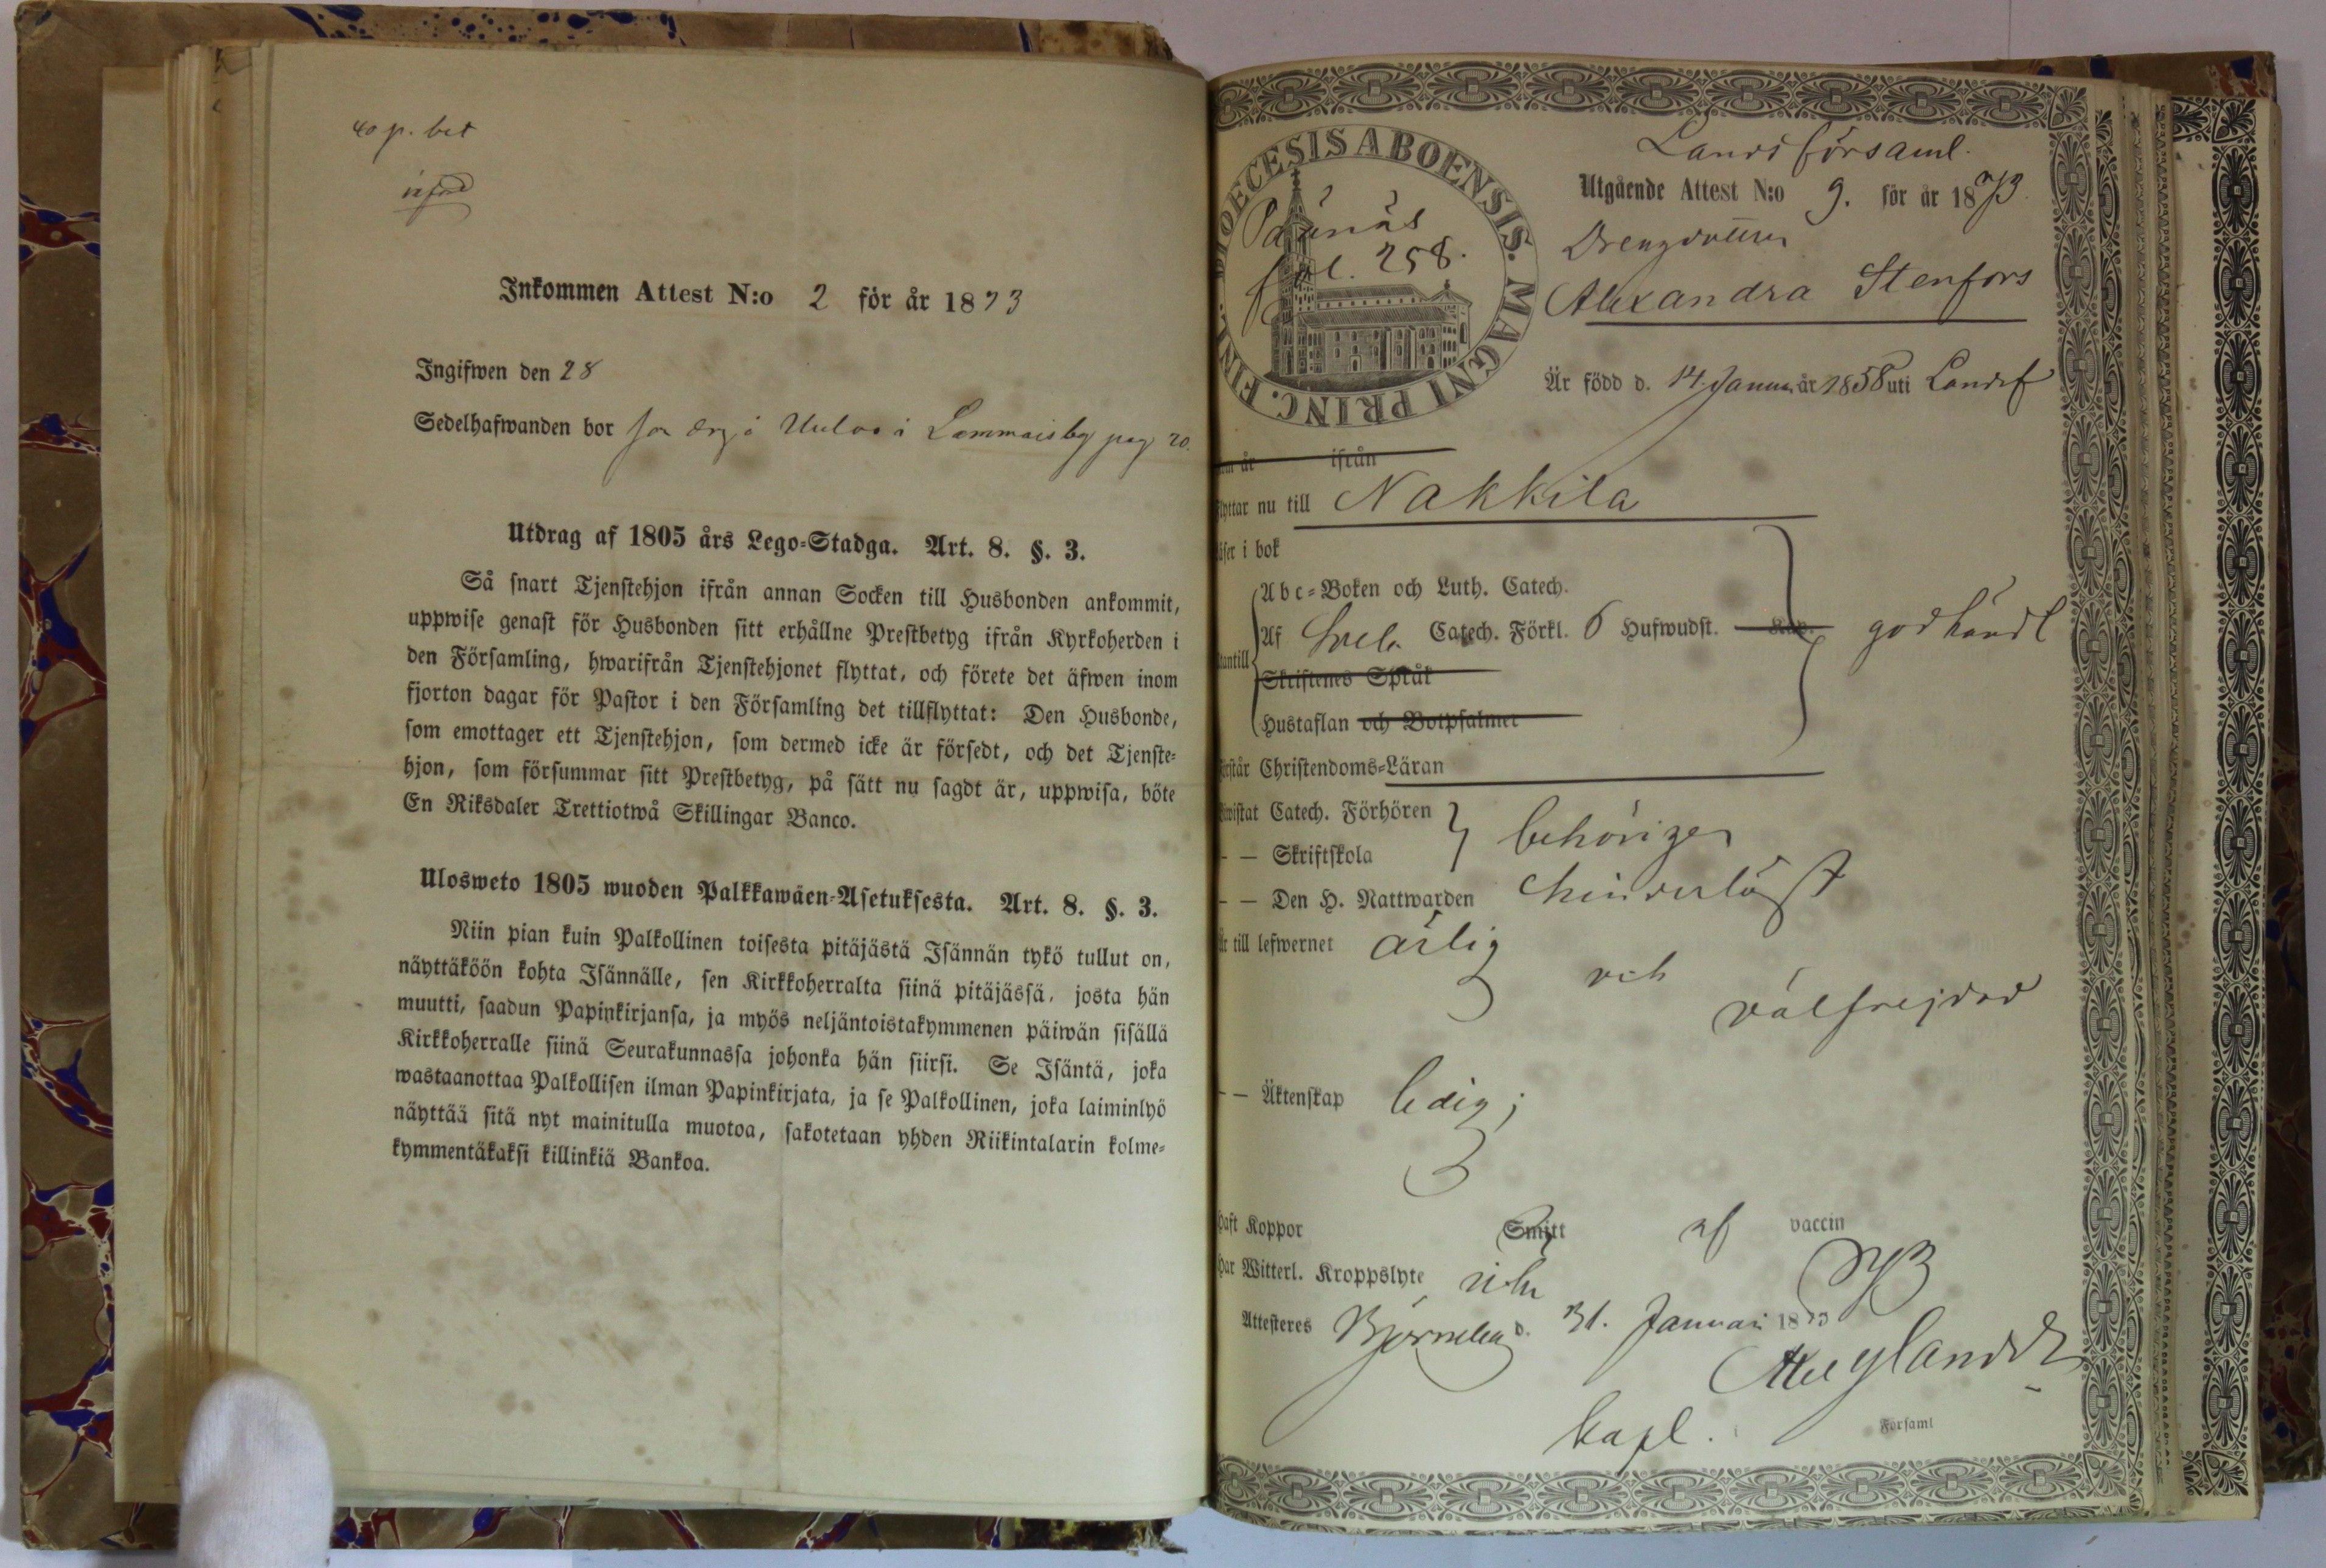 40 p. bet
införd
Inkommen Attest N:o 2 för år 1873
Ingifwen den 28
Sedelhafwanden bor i Lammaisby pag 20.
Utdrag af 1805 års Lego-Stadga. Art. 8. §. 3.
Så snart Tjenstehjon ifrån annan Socken till Husbonden ankommit,
uppwise genast för Husbonden sitt erhållne Prestbetyg ifrån Kyrkoherden i
den Församling, hwarifrån Tjenstehjonet flyttat, och förete det äfwen inom
fjorton dagar för Pastor i den Församling det tillflyttat: Den Husbonde,
som emottager ett Tjenstehjon, som dermed icke är försedt, och det Tjenste-
hjon, som försummar sitt Prestbetyg, på sätt nu sagdt är, uppwisa, böte
En Riksdaler Trettiotwå Skillingar Banco.
Ulosweto 1805 wuoden Palkkawäen-Asetuksesta. Art. 8. §. 3.
Niin pian kuin Palkollinen toisesta pitäjästä Isännän tykö tullut on,
näyttäköön kohta Isännälle, sen Kirkkoherralta siinä pitäjässä, josta hän
muutti, saadun Papinkirjansa, ja myös neljäntoistakymmenen päiwän sisällä
Kirkkoherralle siinä Seurakunnassa johonka hän siirsi. Se Isäntä, joka
wastaanottaa Palkollisen ilman Papinkirjata, ja se Palkollinen, joka laiminlyö
näyttää sitä nyt mainitulla muotoa, sakotetaan yhden Riikintalarin kolme-
kymmentäkaksi killinkiä Bankoa.
DIOECESIS ABOENSIS. MAGNI PRINC. FINL.
Påünäs
fol. 258.
Landsförsaml.
Utgående Attest N:o 9. för år 1873.
Drengdottren
Alexandra Stenfors
Är född d. 14 Januari år 1858 uti Landsf
år ifrån
flyttar nu till Nakkila
läser i bok
Abc-Boken och Luth. Catech.
utantill Af Svebel. Catech. Förkl. 6 Hufwudst. Kap. godkändt
Skriftenes Språk
Hustaflan och Botpsalmer
förstår Christendoms-Läran
bewistat Catech. Förhören
— — Skriftskola behörigen
— — Den H. Nattwarden hinderlöst
är till lefwernet ärlig
och
välfrejdad
— — Äktenskap ledig;
haft Koppor Smitt af vaccin
har Witterl. Kroppslyte icke
Attesteres Björneborg d. 31. Januari 1873
Axel Nylander
kapl. i Församl